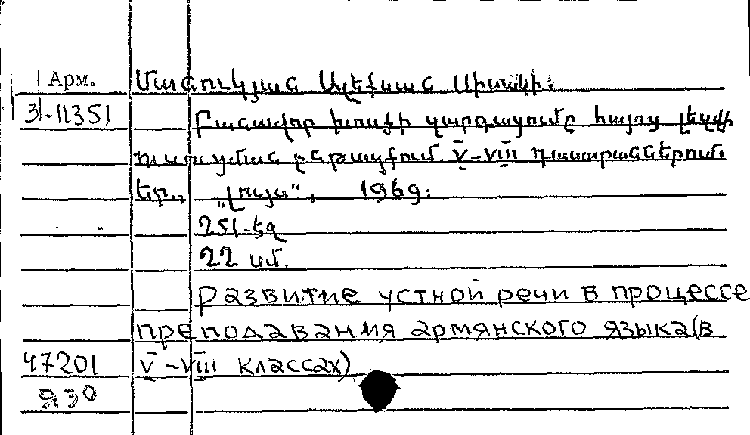 Арм. Մանուկյան Ալեքսան Միսակի։
31-11351 Բանավոր խոսքի զարգացումը հայոց լեզվի
ուսուցման ընթացքում V-VIII դասարաններում.
Եր., „Լույս“, 1969։
251 էջ
22 սմ.
Развитие устной речи в процессе
преподавания армянского языка (в
47201 V-VIII классах)